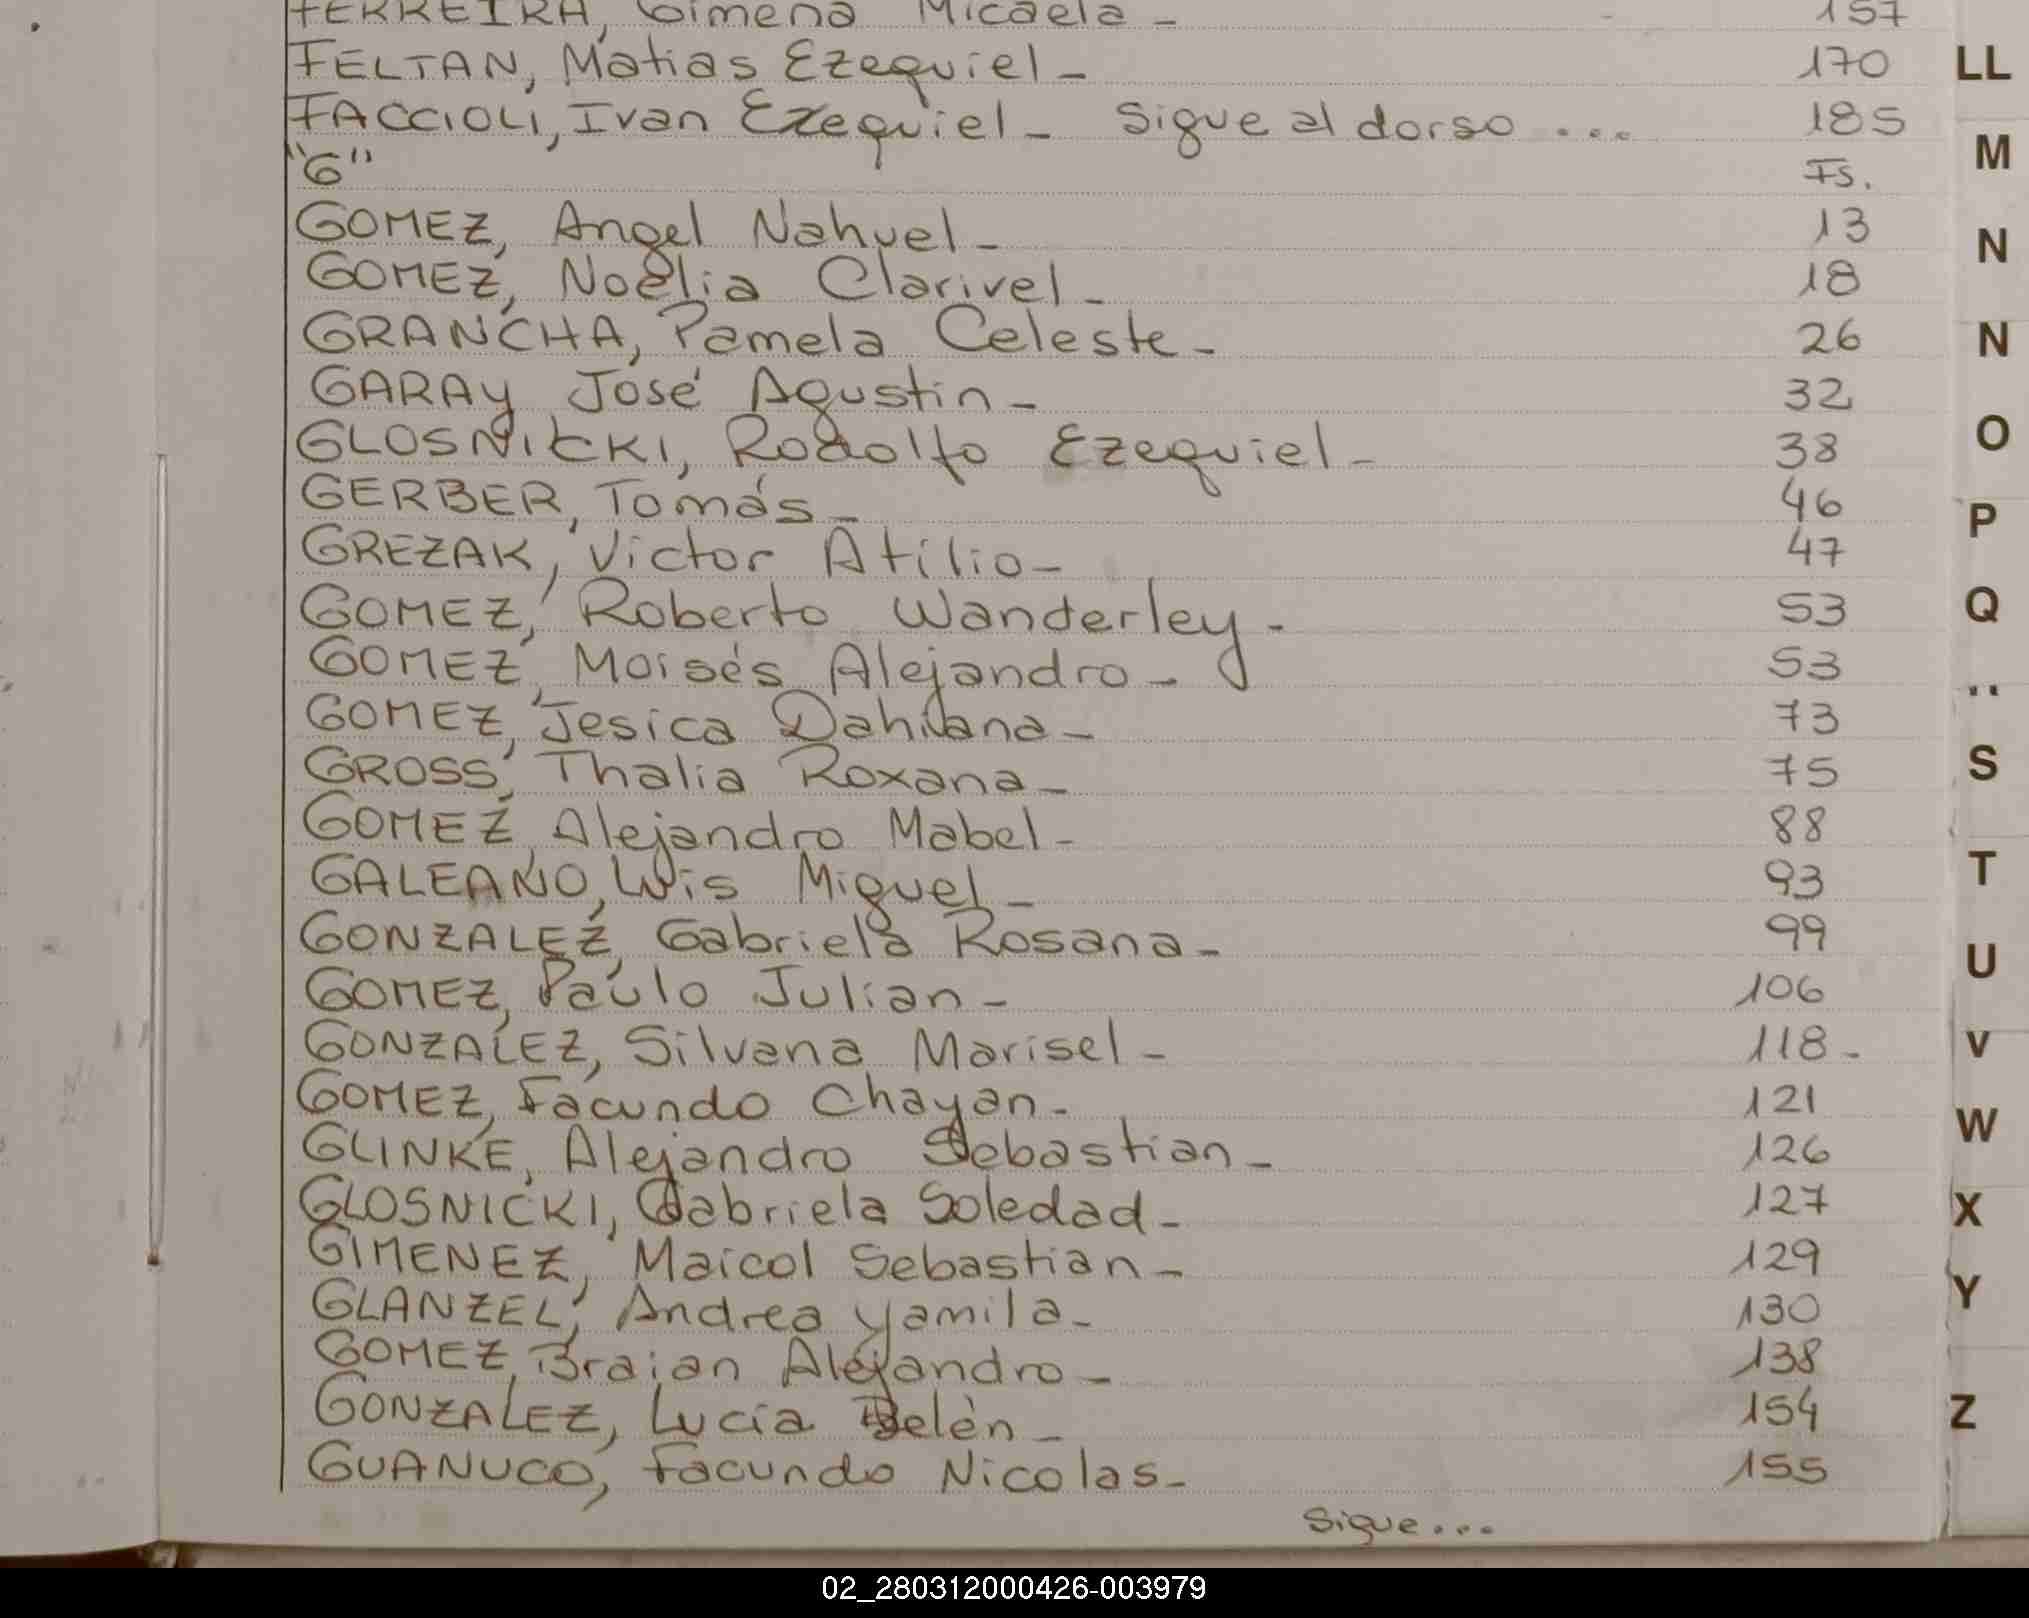 FERREIRA, Gimena Micaela - 157
FELTAN, Matias Ezequiel - 170
LL
FACCIOLI, Ivan Ezequiel - Sigue al dorso ... 185
M
"G" Fs.
GOMEZ, Angel Nahuel - 13
N
GOMEZ, Noelia Clarivel - 18
GRANCHA, Pamela Celeste - 26
N
GARAY, José Agustin - 32
GLOSNICKI, Rodolfo Ezequiel - 38
O
GERBER, Tomás - 46
P
GREZAK, Victor Atilio - 47
GOMEZ, Roberto Wanderley - 53
Q
GOMEZ, Moisés Alejandro - 53
GOMEZ, Jesica Dahiana - 73
GROSS, Thalia Roxana - 75
S
GOMEZ, Alejandro Mabel - 88
GALEANO, Luis Miguel - 93
T
GONZALEZ, Gabriela Rosana - 99
U
GOMEZ, Paulo Julian - 106
GONZALEZ, Silvana Marisel - 118 -
V
GOMEZ, Facundo Chayan - 121
W
GLINKE, Alejandro Sebastian - 126
GLOSNICKI, Gabriela Soledad - 127
X
GIMENEZ, Maicol Sebastian - 129
Y
GLANZEL, Andrea Yamila - 130
GOMEZ, Braian Alejandro - 138
GONZALEZ, Lucía Belén - 154
Z
GUANUCO, Facundo Nicolas - 155
Sigue...
02_280312000426-003979